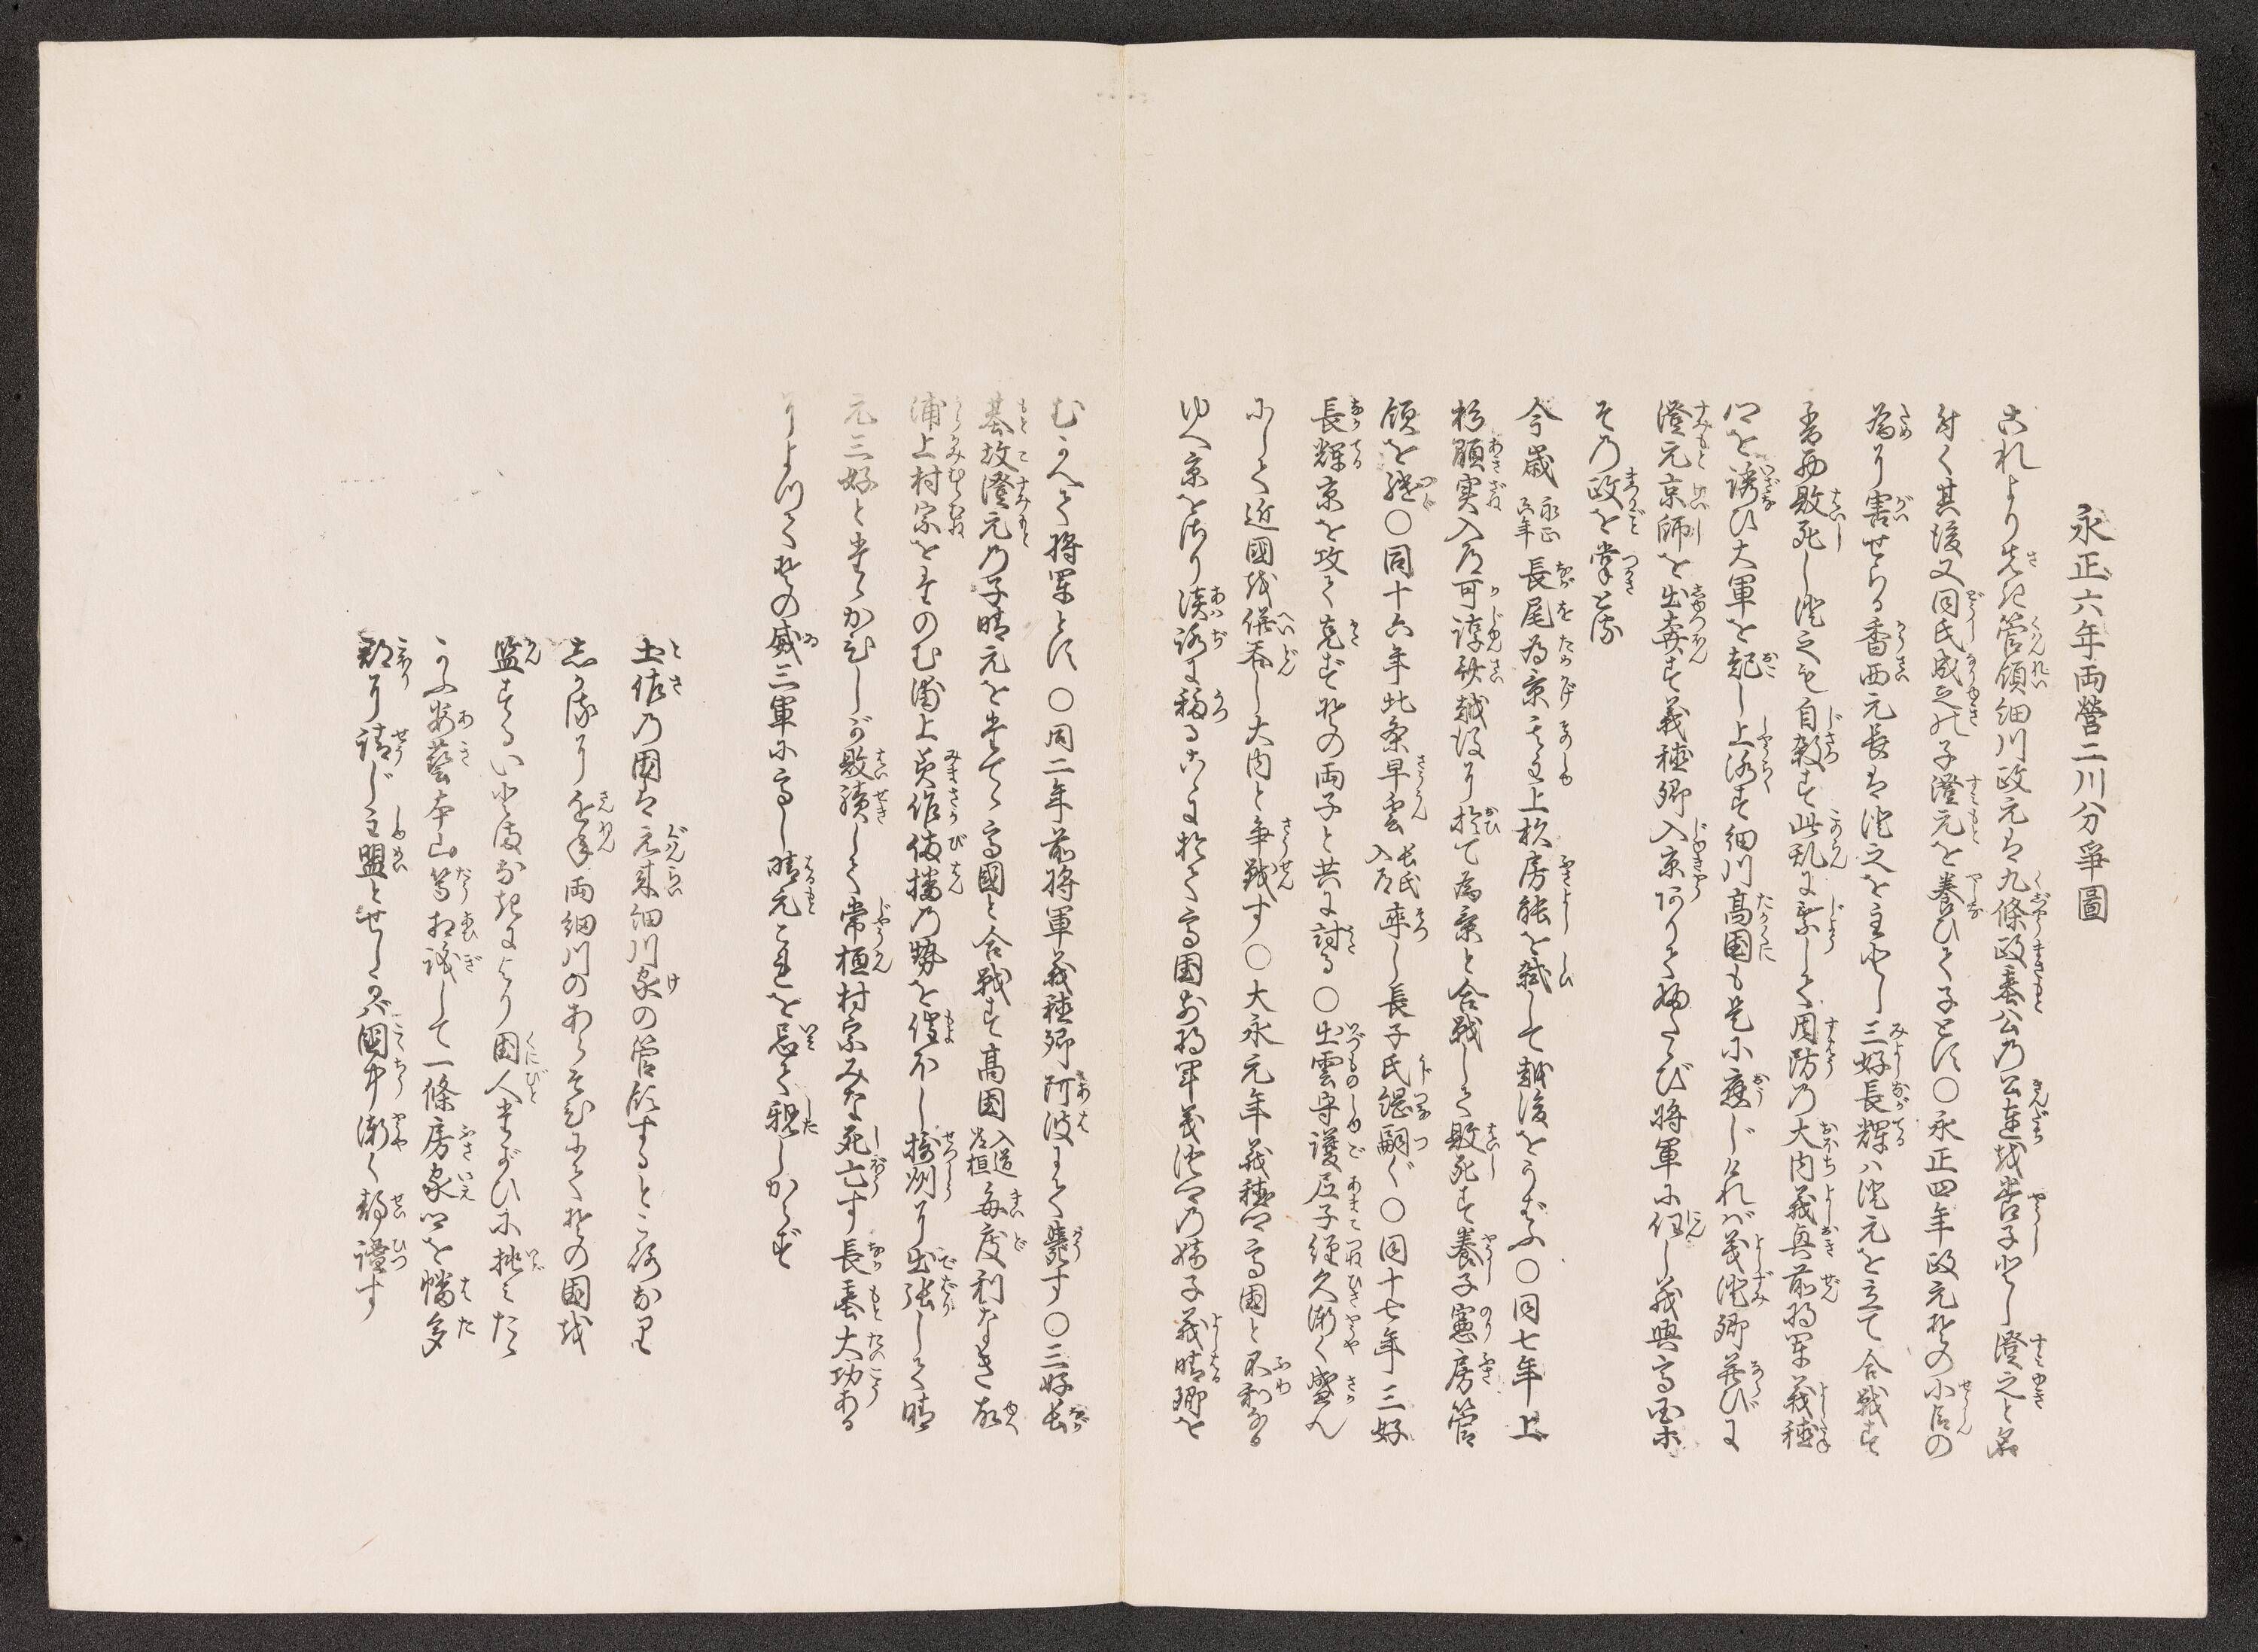 永正六年両營二川分爭圖
これより先き管領細川政元は九條政基公乃公達を養子とし澄之と名
付く其後又同氏成之の子澄元を養ひて子とす〇永正四年政元その小臣の
為に害せらる香西元長は澄之を主とし三好長輝ハ澄元を立て合戦す
香西敗死し澄之も自殺す此乱に乗じて周防乃大内義興前将軍義稙
公を誘ひ大軍を起し上洛す細川高国も是に應じければ義澄卿并びに
澄元京師を出奔す義稙卿入京ありて再たび将軍に任し義興高国等
その政を掌とる
今歳永正六年長尾為景其主上杉房能を弑して越後をうばふ〇同七年上
杉顕実入道可諄越後に於て為景と合戦して敗死す養子憲房管
領を継ぐ〇同十六年北条早雲長氏入道卒し長子氏綱嗣ぐ〇同十七年三好
長輝京を攻て克ずその両子と共に討る〇出雲守護尼子経久漸く盛ん
にして近國を併呑し大内と争戦す〇大永元年義稙公高國と不和なる
ゆへ京を去り淡路に移るこゝに於て高国前将軍義澄公乃嫡子義晴卿を
むかへて将軍とす〇同二年前将軍義稙卿阿波にて薨す〇三好長
基故澄元乃子晴元を立て高國と合戦す高国入道常桓毎度利なき故
浦上村宗をたのむ浦上美作備播乃勢を催ほし摂州に出張して晴
元三好とたゝかひしが敗績して常桓村宗みな死亡す長基大功ある
によつてその威三軍に高し晴元これを忌て親しからず
土佐乃国は元来細川家の管領するところなり
しかるに近年両細川のあらそひにてその国を
監するいとまなきによりて国人たがひに挑みたゝ
かふ安藝本山等相議して一條房家公を幡多
郡に請じ主盟とせしかば國中漸く靜謐す